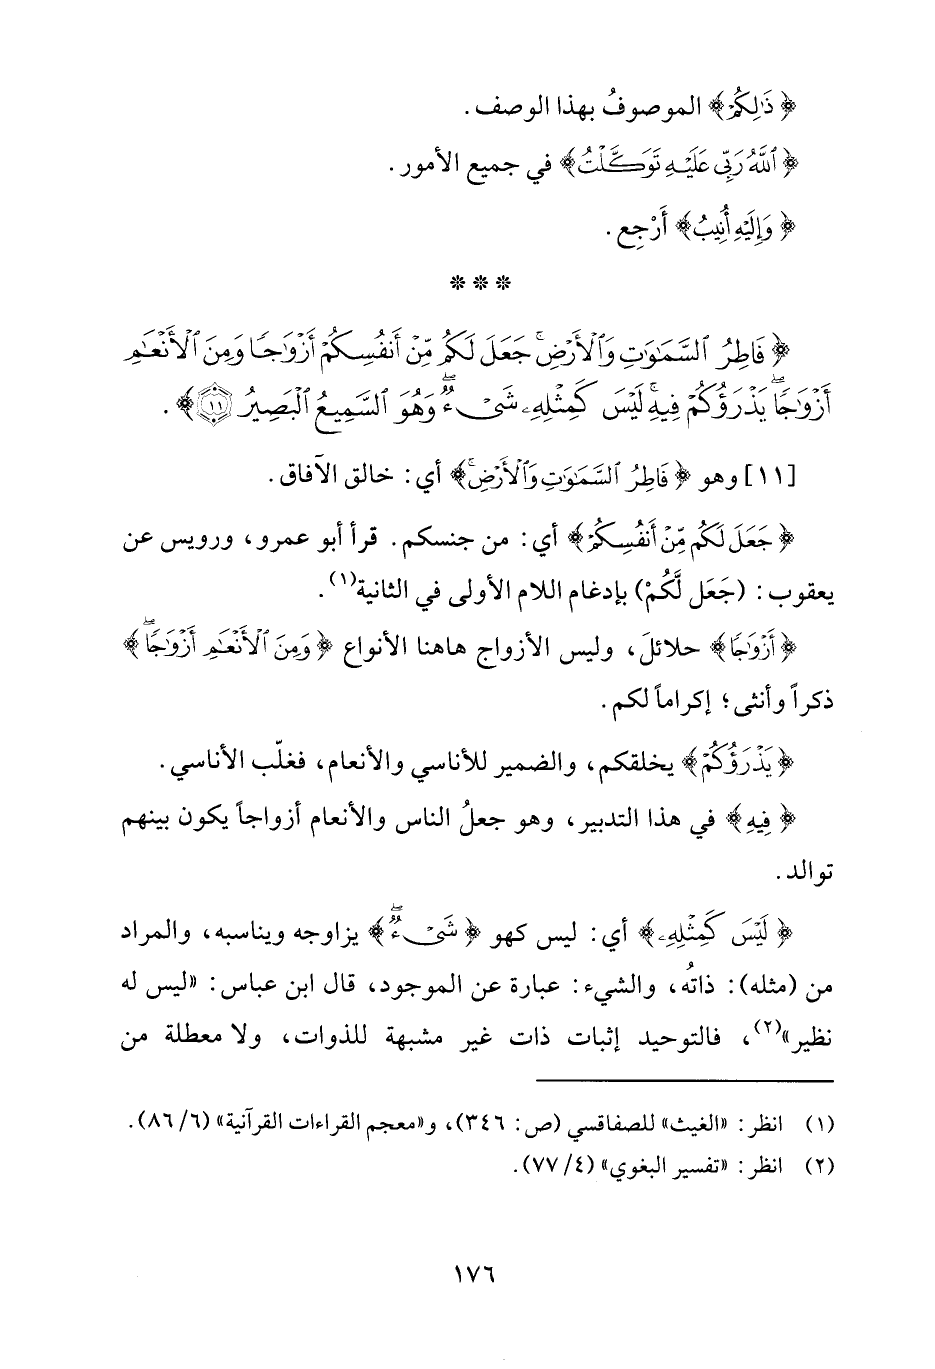 ﴿ذَٰلِكُمُ﴾ الموصوفُ بهذا الوصف.
﴿ٱللَّهُ رَبِّي عَلَيْهِ تَوَكَّلْتُ﴾ في جميع الأمور.
﴿وَإِلَيْهِ أُنِيبُ﴾ أَرْجِع.
* * *
﴿فَاطِرُ ٱلسَّمَٰوَٰتِ وَٱلْأَرْضِ ۚ جَعَلَ لَكُم مِّنْ أَنفُسِكُمْ أَزْوَٰجًا وَمِنَ ٱلْأَنْعَٰمِ
أَزْوَٰجًا ۖ يَذْرَؤُكُمْ فِيهِ ۚ لَيْسَ كَمِثْلِهِۦ شَىْءٌ ۖ وَهُوَ ٱلسَّمِيعُ ٱلْبَصِيرُ ⑪﴾.
[١١] وهو ﴿فَاطِرُ ٱلسَّمَٰوَٰتِ وَٱلْأَرْضِ ۚ﴾ أي: خالق الآفاق.
﴿جَعَلَ لَكُم مِّنْ أَنفُسِكُمْ﴾ أي: من جنسكم. قرأ أبو عمرو، ورويس عن
يعقوب: (جَعَل لَّكُمْ) بإدغام اللام الأولى في الثانية(١).
﴿أَزْوَٰجًا﴾ حلائلَ، وليس الأزواج هاهنا الأنواع ﴿وَمِنَ ٱلْأَنْعَٰمِ أَزْوَٰجًا ۖ﴾
ذكراً وأنثى؛ إكراماً لكم.
﴿يَذْرَؤُكُمْ﴾ يخلقكم، والضمير للأناسي والأنعام، فغلّب الأناسي.
﴿فِيهِ﴾ في هذا التدبير، وهو جعلُ الناس والأنعام أزواجاً يكون بينهم
توالد.
﴿لَيْسَ كَمِثْلِهِۦ﴾ أي: ليس كهو ﴿شَىْءٌ ۖ﴾ يزاوجه ويناسبه، والمراد
من (مثله): ذاتُه، والشيء: عبارة عن الموجود، قال ابن عباس: «ليس له
نظير»(٢)، فالتوحيد إثبات ذات غير مشبهة للذوات، ولا معطلة من
(١) انظر: «الغيث» للصفاقسي (ص: ٣٤٦)، و«معجم القراءات القرآنية» (٦/ ٨٦).
(٢) انظر: «تفسير البغوي» (٤/ ٧٧).
١٧٦